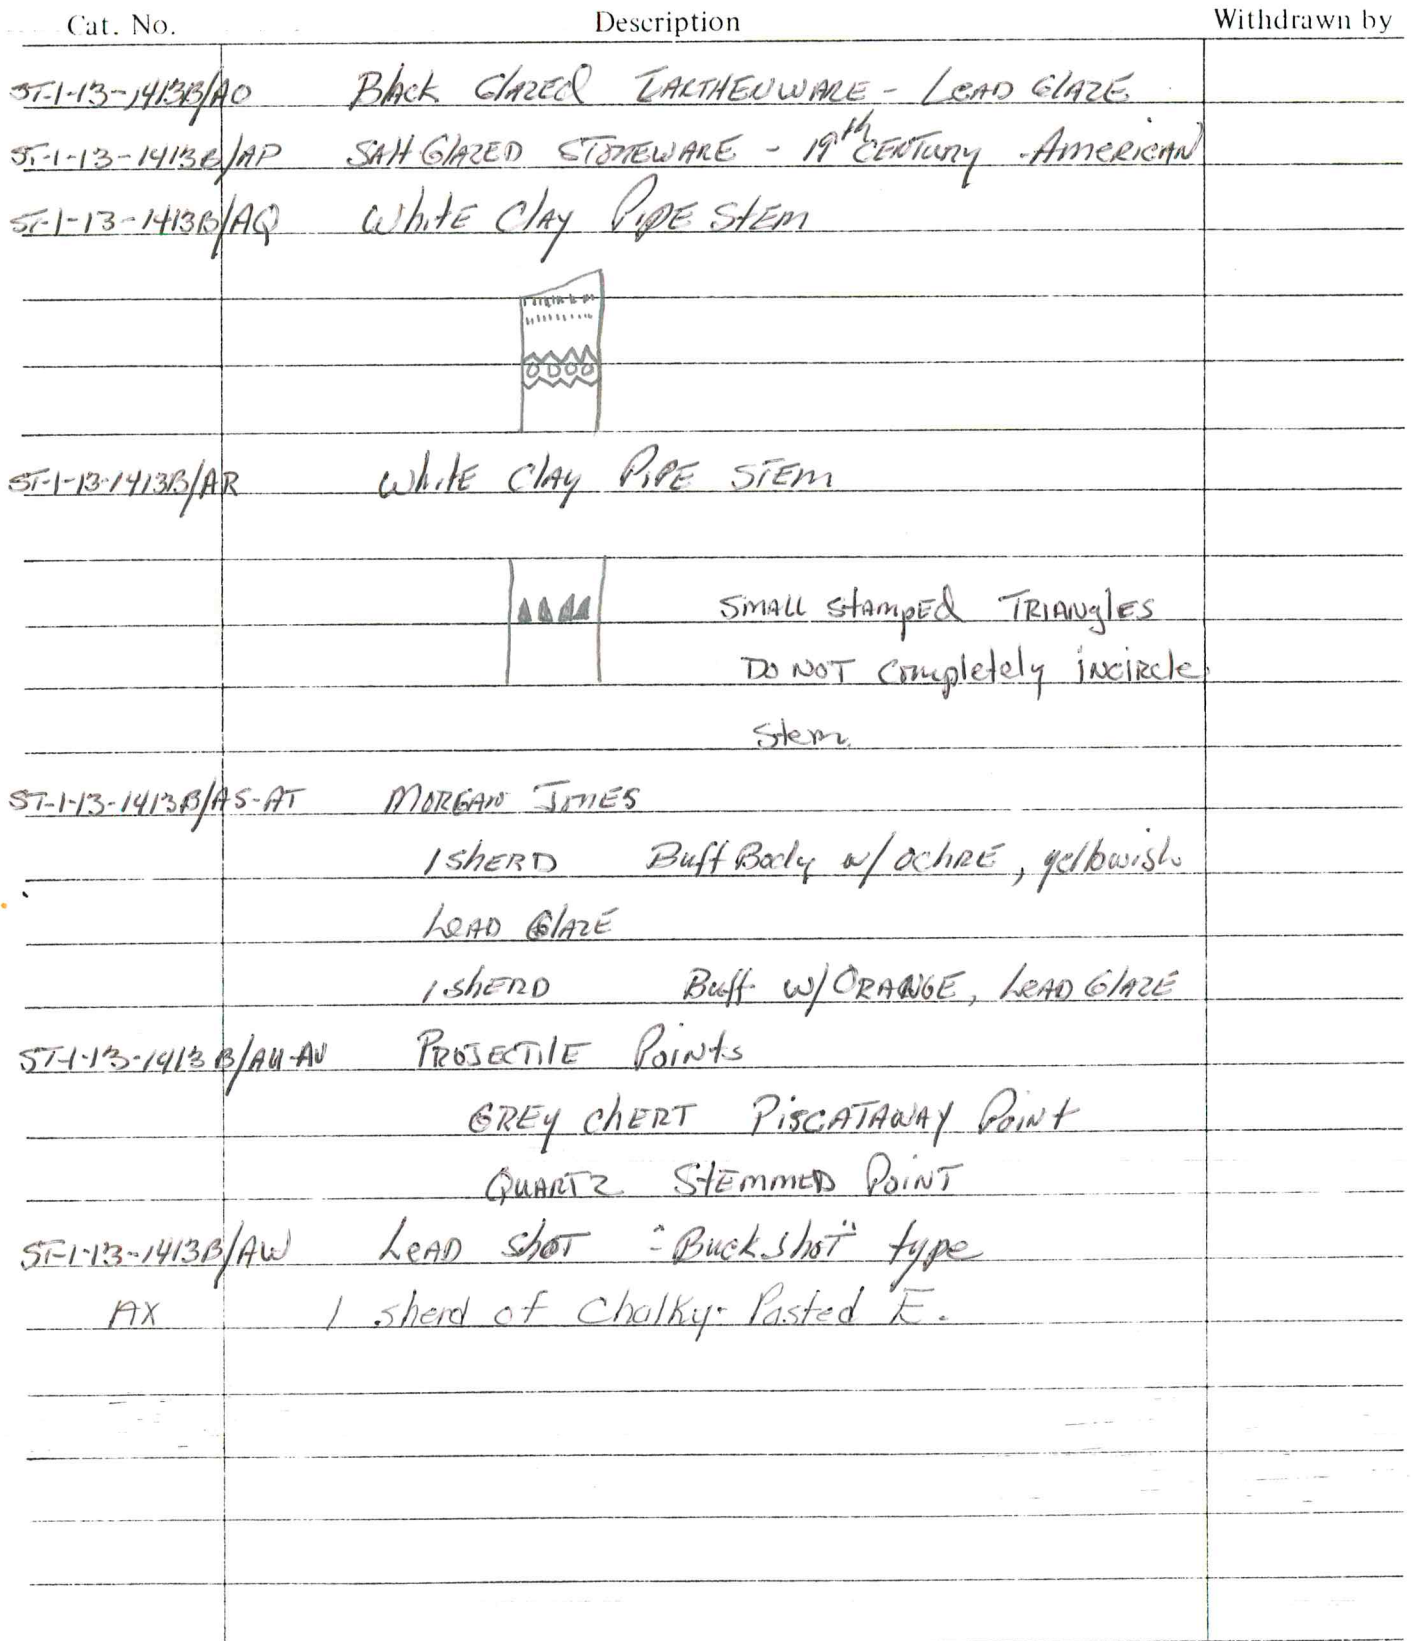 Cat. No. Description Withdrawn by
ST-1-13-1413B/AO Black Glazed Earthenware - Lead Glaze
ST-1-13-1413B/AP Salt Glazed Stoneware - 19th Century American
ST-1-13-1413B/AQ White Clay Pipe Stem
ST-1-13-1413B/AR White Clay Pipe Stem
Small stamped Triangles
Do Not Completely incircle
Stem
ST-1-13-1413B/AS-AT Morgan Jones
1 Sherd Buff Body w/ ochre, yellowish
Lead Glaze
1 Sherd Buff w/ Orange, Lead Glaze
ST-1-13-1413B/AU-AV Projectile Points
Grey Chert Piscataway Point
Quartz Stemmed Point
ST-1-13-1413B/AW Lead Shot - "Buckshot" type
AX 1 sherd of Chalky-Pasted E.